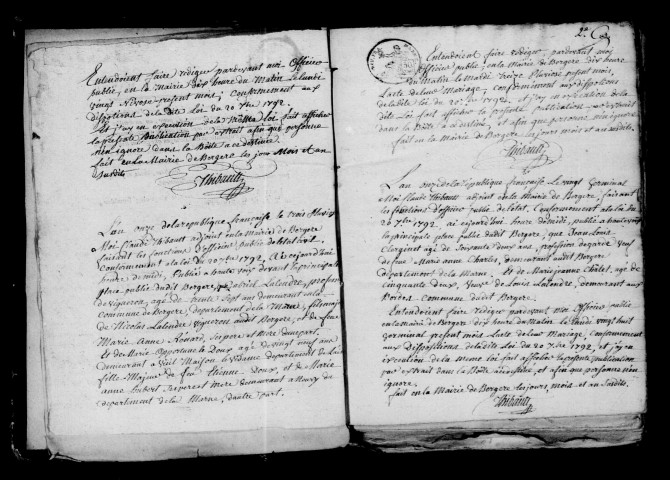 Entendoient faire rédiger pardevant moi Officier
public, en la Mairie dix heure du Matin Le lundi
vingt Nivose present mois; Conformement aux
dispositions de la dite Loi du 20 7bre 1792.
Et j'ay en execution de la même Loi fait afficher
la presente Publication par extrait afin que personne
n'en ignore dans la Boîte a ce destinée
fait en la Mairie de Bergere les jour Mois et an
Susdits
Thibault
L'an onze de la republique française le trois
Moi Claude Thibaut adjoint en la Mairie de Bergere
faisant les fonctions d'officier Public de l'etat civil
Conformement a la loi du 20 7bre 1792, Ai cejourd'hui
heure de midi, Publié a haute voix devant la principale
place public dudit Bergere, que Gabriel Lalondre, profession
de vigneron, agé de trente sept ans demeurant en la
Commune de Bergere, departement de la Marne, fils majeur
de Nicolas Lalondre vigneron audit Bergere, et de feue
Marie Anne Ronard, Ses pere et Mere d'une part.
Et de Marie agé de vingt neuf ans
demeurant a Vieil Maison departement de
fille Majeur de feu Etienne Doux, et de Marie
anne Aubert Ses pere et Mere demeurant a
departement de la Marne, d'autre part.
2e
Entendoient faire rediger, pardevant moi
Officier public, en la Mairie de Bergere dix heure
du Matin Le Mardi treize Pluviose present mois,
L'acte de leur Mariage, Conformement aux dispositions
de la dite loi du 20 7bre 1792, Et j'ay en execution de la
même Loi fait afficher la presente publication par extrait
dans la Boîte a ce destinée, et afin que personne n'en ignore
fait en la Mairie de Bergere les jours mois et an Susdits.
Thibault
L'an onze de la République française Le vingt Germinal
Moi Claude Thibaut adjoint en la Mairie de Bergere, faisant
les fonctions d'officier public de l'etat, Conformement a la loi du
20 7bre 1792, ai cejourd'hui heure de midi, publié a haute voix
la principale place public dudit Bergere, que Jean Louis
Clergeot agé de Soixante deux ans, profession de Veuf
de feue Marie anne Charles, demeurant audit Bergere
departement de la Marne. Et de Marie jeanne Châlet, agé de
Cinquante deux, Veuve de Louis Lalondre, demeurant aux
Bordes Commune dudit Bergere.
Entendoient faire rediger pardevant moi Officier public
en la Mairie de Bergere dix heure du Matin Le lundi vingt huit
germinal present mois Lacte de leur Mariage, Conformement
aux dispositions de la dite Loi du 20 7bre 1792, et j'ay en
execution de la meme loi fait afficher la presente publication
par extrait dans la Boîte a ce destinée, et afin que personne n'en
ignore.
fait en la Mairie de Bergere les jours, mois et an susdits.
Thibault